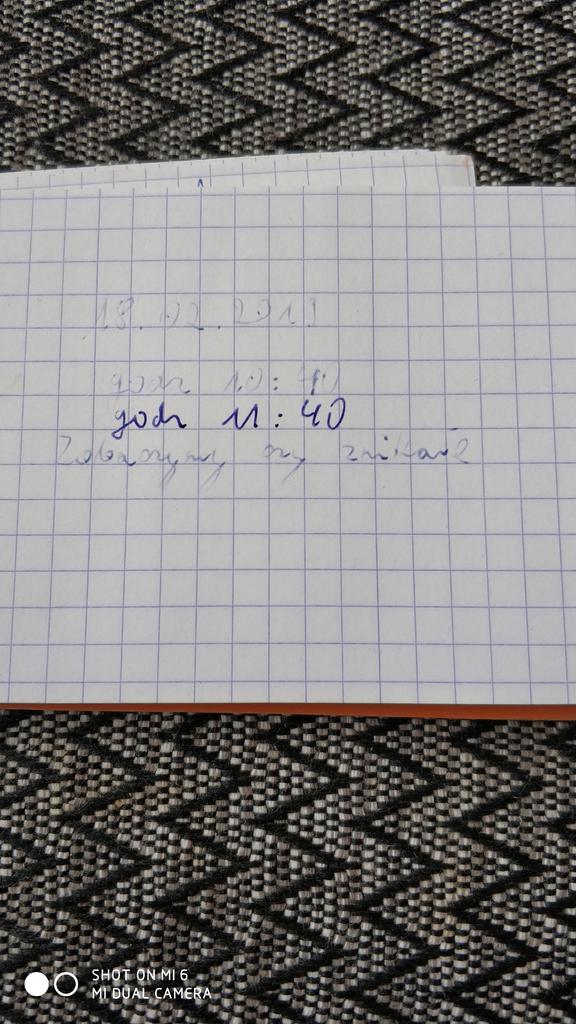 18.02.2019
godz 10:40
godz 11:40
Zobaczymy czy znikanie
SHOT ON MI 6
MI DUAL CAMERA